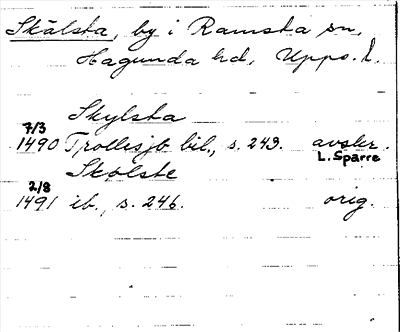 Skälsta, by i Ramsta sn,
Hagunda hd, Upps. l.
Skylsta
7/3
1490 Trollesjb bil., s. 243. avskr.
L. Sparre
Skolste
2/8
1491 ib., s. 246. orig.